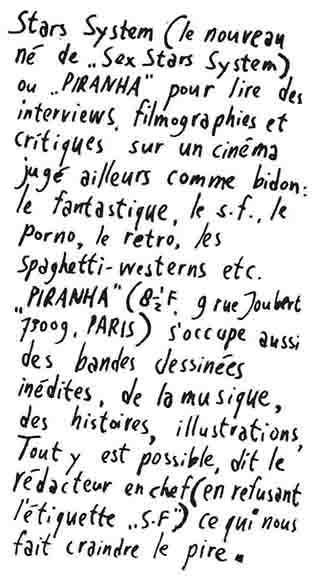 Stars System (le nouveau
né de „Sex Stars System)
ou „PIRANHA" pour lire des
interviews, filmographies et
critiques sur un cinéma
jugé ailleurs comme bidon:
le fantastique, le s.f., le
porno, le rétro, les
spaghetti-westerns etc.
„PIRANHA" (8½F. 9 rue Joubert
75009, PARIS) s'occupe aussi
des bandes dessinées
inédites, de la musique,
des histoires, illustrations,
Tout y est possible, dit le
rédacteur en chef (en refusant
l'étiquette „S.F") ce qui nous
fait craindre le pire.